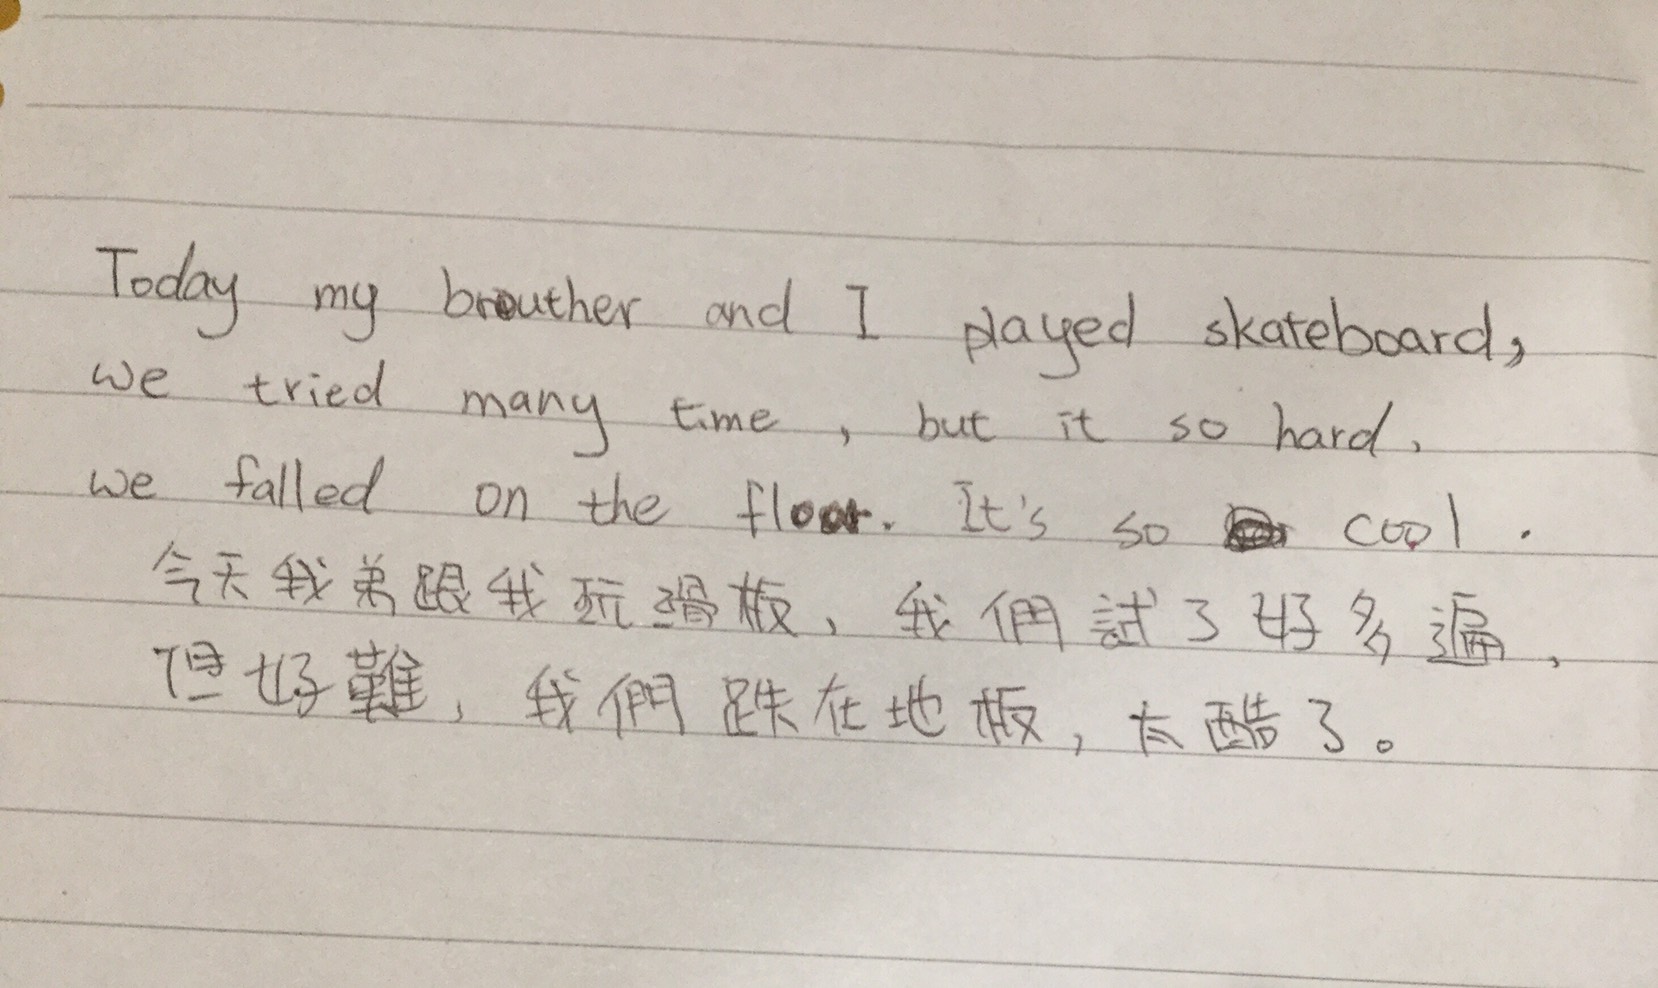 Today my brouther and I played skateboard,
we tried many time, but it so hard.
we falled on the floor. It's so cool.
今天我弟跟我玩滑板，我們試了好多遍，
但好難，我們跌在地板，太酷了。